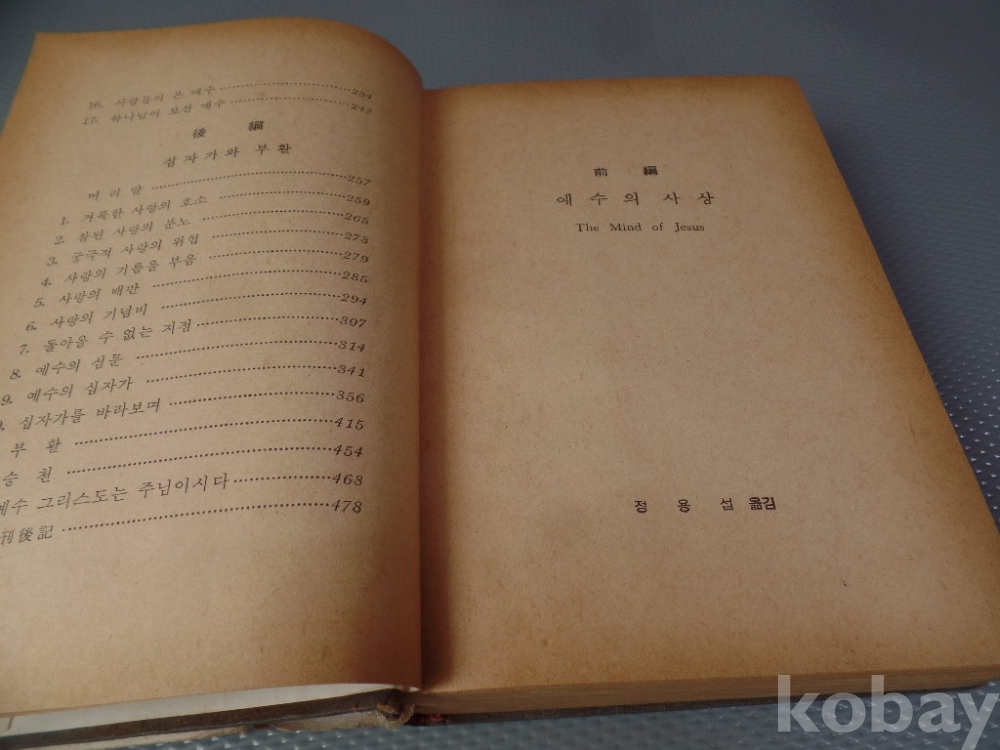 16. 사람들이 본 예수 234
17. 하나님이 보신 예수 247
後 編
십자가와 부활
머 리 말 257
1. 거룩한 사랑의 호소 259
2. 참된 사랑의 분노 265
3. 궁극적 사랑의 위협 273
4. 사랑의 기름을 부음 279
5. 사랑의 배반 285
6. 사랑의 기념비 294
7. 돌아올 수 없는 지점 307
8. 예수의 심문 314
9. 예수의 십자가 341
십자가를 바라보며 356
부 활 415
승 천 454
예수 그리스도는 주님이시다 468
刊後記 478
前 編
예 수 의 사 상
The Mind of Jesus
정 용 섭 옮김
kobay